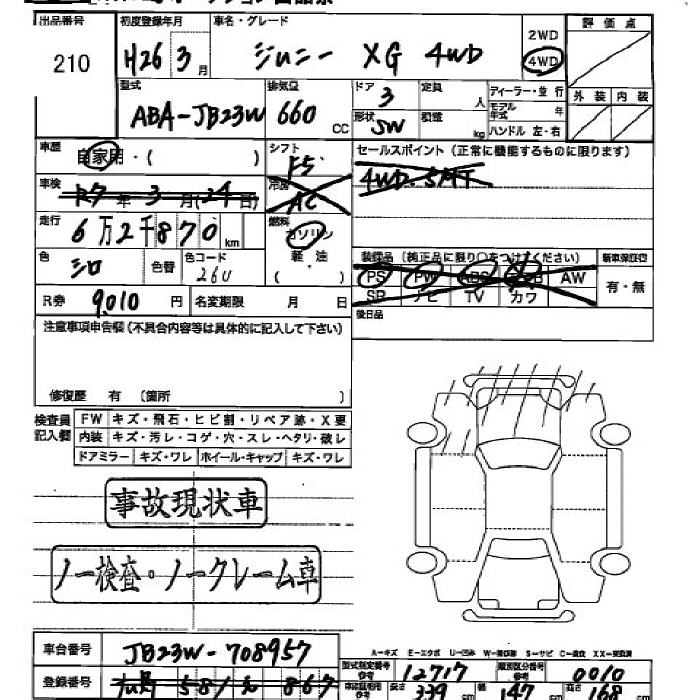 出品番号 初度登録年月 車名・グレード 2WD 評価点
210 H26 3月 ジムニー XG 4WD 4WD
型式 排気量 ドア 定員 ディーラー・並行 外装 内装
ABA-JB23W 660cc 3 人 モデル年式 年
形状 積載 ハンドル 左・右
SW kg
車歴 自家用・( ) シフト F5 セールスポイント(正常に機能するものに限ります)
車検 R7年3月(24日) 冷房 AC 4WD. 5MT
走行 6万2千870km 燃料 ガソリン
色 シロ 色替 色コード 26U 軽油 ( ) 装備品(純正品に限り○をつけてください) 新車保証書
PS PW ABS AW 有・無
SR ナビ TV カワ
R券 9,010円 名変期限 月 日 後日品
注意事項申告欄(不具合内容等は具体的に記入して下さい)
修復歴 有 〔箇所 〕
検査員記入欄 FW キズ・飛石・ヒビ割・リペア跡・X要
内装 キズ・汚レ・コゲ・穴・スレ・ヘタリ・破レ
ドアミラー キズ・ワレ ホイール・キャップ キズ・ワレ
事故現状車
ノー検査・ノークレーム車
A−キズ E−エクボ U−凹み W−補修跡 S−サビ C−腐食 XX−交換済
車台番号 JB23W-708957 型式指定番号 参考 12717 類別区分番号 参考 0010
登録番号 広島 581 867 長さ 339cm 幅 147cm 高さ 168cm